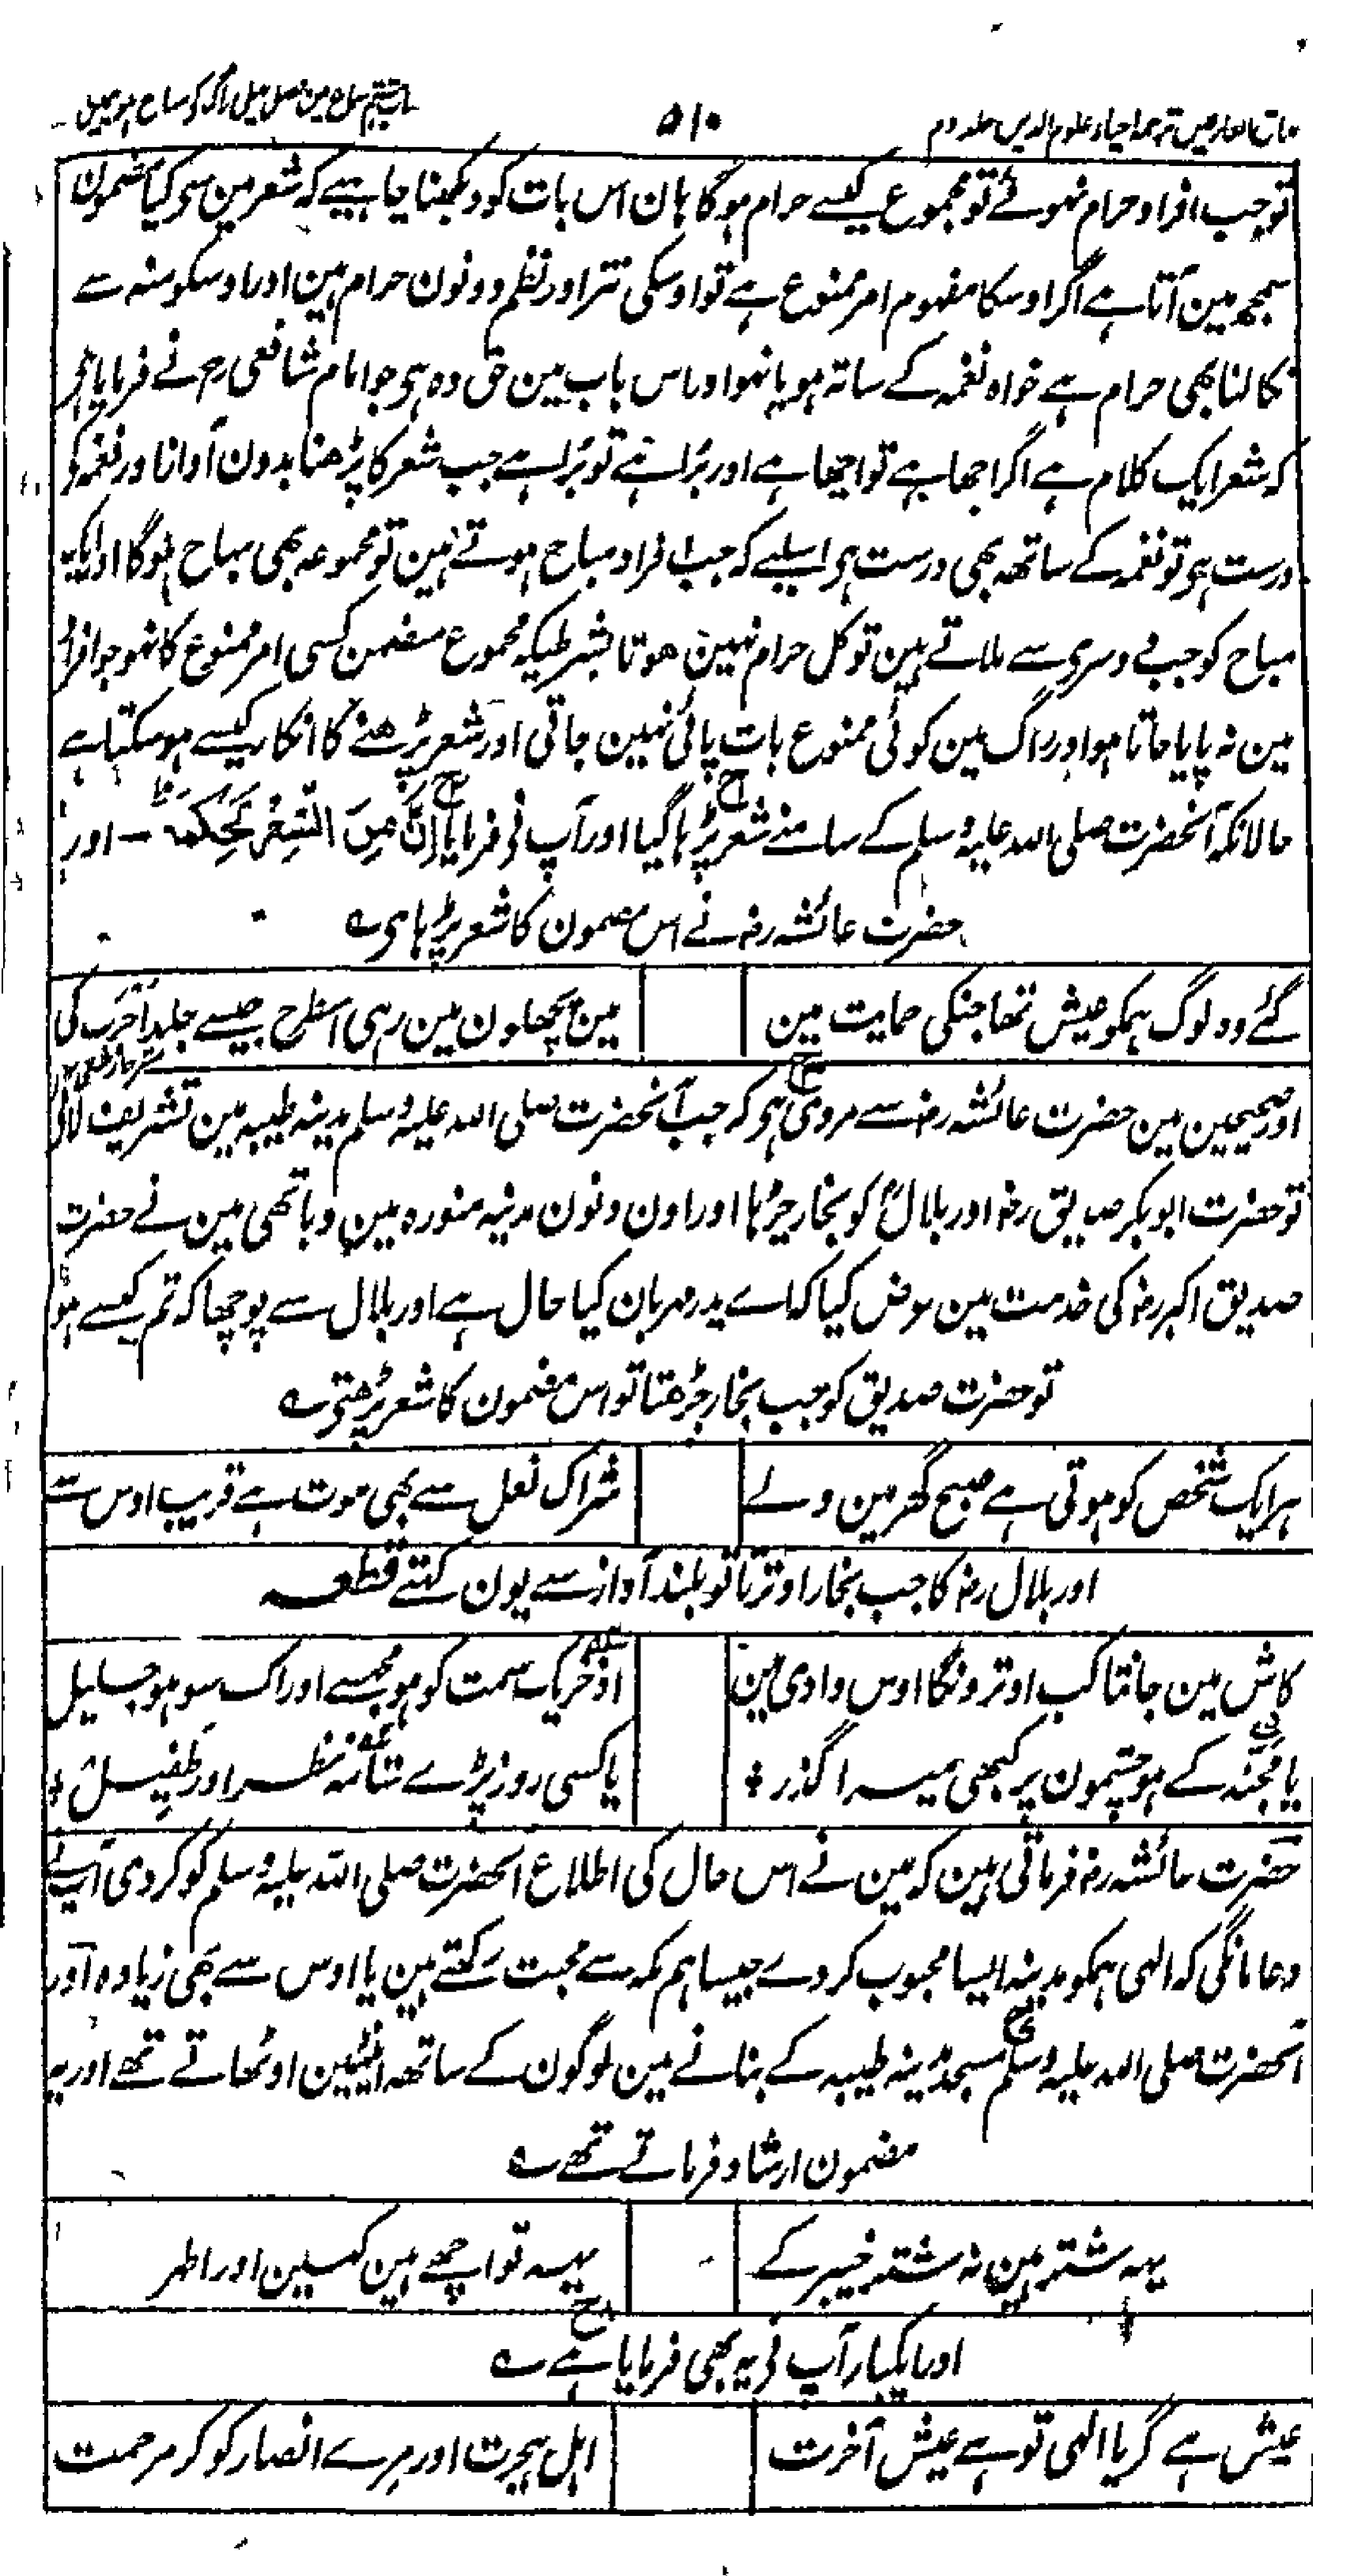 مذاق العارفین ترجمہ احیاء علوم الدین جلد دوم
۵۱۰
توجب افراد حرام نہوئے تو مجموع کیسے حرام ہوگا ہان اس بات کو دیکھنا چاہیے کہ شعر مین سی کیا مضمون
سمجھ مین آتا ہے اگر اوسکا مفہوم امر ممنوع ہے تو اوسکی نثر اور نظم دونون حرام ہین اور اوسکو منہ سے
نکالنا بھی حرام ہے خواہ نغمہ کے ساتہ ہو یا نہو اور اس باب مین حق وہ ہی جو امام شافعی رح نے فرمایا ہی
کہ شعر ایک کلام ہے اگر اچھا ہے تو اچھا ہے اور برُا ہے تو برُا ہے جب شعر کا پڑھنا بدون آواز اور نغمہ کو
درست ہی تو نغمہ کے ساتھہ بھی درست ہی اسلیے کہ جب افراد مباح ہوتے ہین تو مجموعہ بھی مباح ہوگا اور ایک
مباح کو جب دوسری سے ملاتے ہین تو کل حرام نہین ہوتا بشرطیکہ مجموع متضمن کسی امر ممنوع کا نہو جو افراد
مین نہ پایا جاتا ہو اور راگ مین کوئی ممنوع بات پائی نہین جاتی اور شعر پڑھنے کا انکار کیسے ہوسکتا ہے
حالانکہ آنحضرت صلی اللہ علیہ وسلم کے سامنے شعر پڑہا گیا اور آپ نی فرمایا اِنَّ مِنَ الشِعْرِ لَحِکْمَۃً – اور
حضرت عائشہ رضہ نے اس مضمون کا شعر پڑہا ہی ؎
گئے وہ لوگ ہمکو عیش تھا جنکی حمایت مین
مین پچھلون مین رہی اسطرح جیسے جلد اَجْرَب کی
اور صحیحین مین حضرت عائشہ رضہ سے مروی ہی کہ جب آنحضرت صلی اللہ علیہ وسلم مدینہ طیبہ مین تشریف لائی
تو حضرت ابو بکر صدیق رضہ اور بلال کو بخار چڑہا اور اون دنون مدینہ منورہ مین وبا تھی مین نے حضرت
صدیق اکبر رضہ کی خدمت مین عرض کیا کہ اے پدر مہربان کیا حال ہے اور بلال سے پوچھا کہ تم کیسے ہو
تو حضرت صدیق کو جب بخار چڑھتا تو اس مضمون کا شعر پڑھتی ؎
ہر ایک شخص کو ہوتی ہے صبح گھر مین ولے
شراک نعل سے بھی موت ہے قریب اوس سے
اور بلال رضہ کا جب بخار اوترتا تو بلند آواز سے یون کہتے قطعہ
کاش مین جانتا کب اوترونگا اوس وادی مین
اِذخر یک سمت کو ہو مجھسے اور اک سو ہو جلیل
یا مِجَنّہ کے ہو چشمون پر کبھی میرا گذر ÷
یا کسی روز پڑے شامہ نظر اور طَفِیل ÷
حضرت عائشہ رضہ فرماتی ہین کہ مین نے اس حال کی اطلاع آنحضرت صلی اللہ علیہ وسلم کو کردی آپ نے
دعا مانگی کہ الٰہی ہمکو مدینہ ایسا محبوب کردے جیسا ہم مکہ سے محبت رکھتے ہین یا اوس سے بھی زیادہ اور
آنحضرت صلی اللہ علیہ وسلم مسجد مدینہ طیبہ کے بنانے مین لوگون کے ساتھہ اینٹین اوٹھاتے تھے اور یہ
مضمون ارشاد فرماتے تھے ؎
یہہ شتر ہین نہ شتر خیبر کے
یہہ تو اچھے ہین کہین اور اطہر
اور ایکبار آپ نی یہ بھی فرمایا ہے ؎
عیش ہے گر یا الٰہی تو ہے عیش آخرت
اہل ہجرت اور مرے انصار کو کر مرحمت